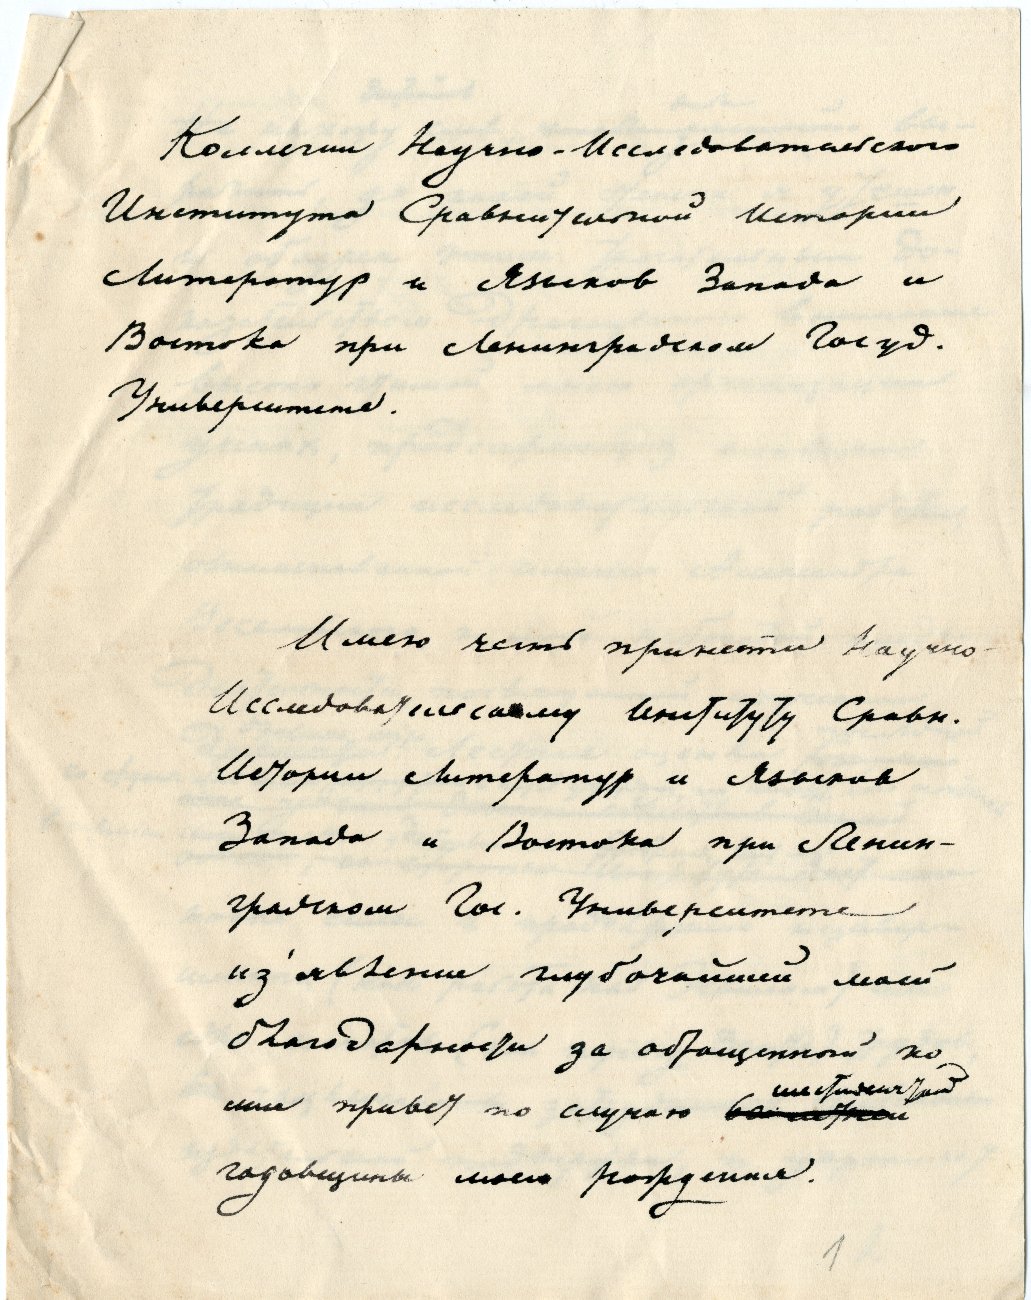 Коллегии Научно-Исследовательского
Института Сравнительной Истории
Литератур и Языков Запада и
Востока при Ленинградском Госуд.
Университете.
Имею честь принести Научно-
Исследовательскому Институту Сравн.
Истории Литератур и Языков
Запада и Востока при Ленин-
градском Гос. Университете
из'явление глубочайшей моей
благодарности за обращенный ко
мне привет по случаю шестидесятой
годовщины моего рождения.
1